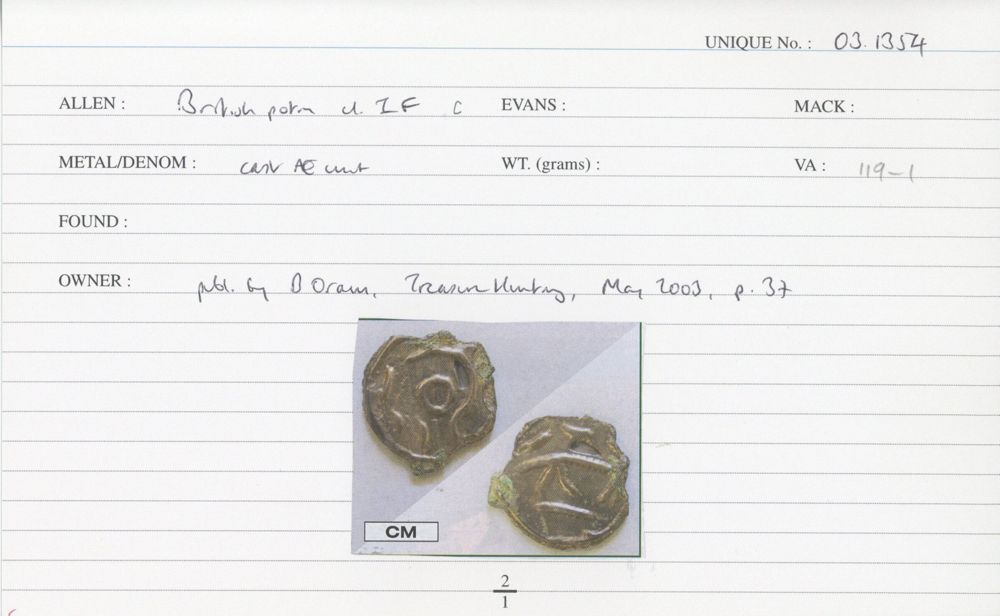 UNIQUE No. : 03.1354
ALLEN : British potin cl. IF C EVANS : MACK :
METAL/DENOM : cast AE unit WT. (grams) : VA : 119-1
FOUND :
OWNER : publ. by D Oram, Treasure Hunting, May 2003, p. 37
CM
2
1